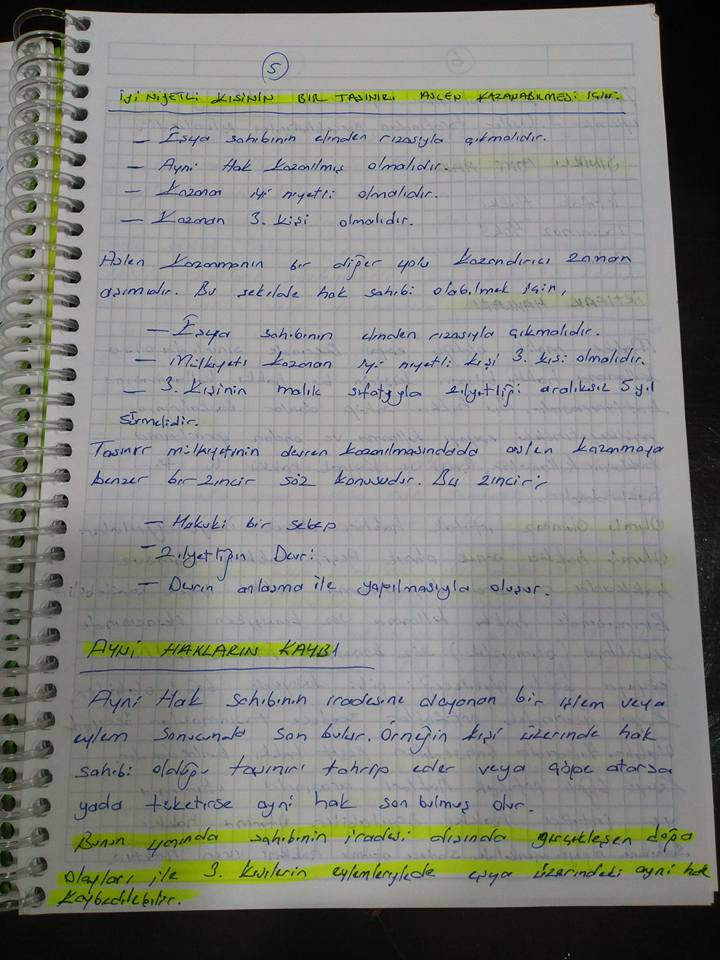 5
İyi Niyetli Kişinin Bir Taşınırı Aslen Kazanabilmesi için.
— Eşya sahibinin elinden rızasıyla çıkmalıdır.
— Ayni Hak Kazanılmış olmalıdır.
— Kazanan iyi niyetli olmalıdır.
— Kazanan 3. kişi olmalıdır.
Aslen Kazanmanın bir diğer yolu kazandırıcı zaman
aşımıdır. Bu şekilde hak sahibi olabilmek için,
— Eşya sahibinin elinden rızasıyla çıkmalıdır.
— Mülkiyeti kazanan iyi niyetli kişi 3. kişi olmalıdır.
— 3. Kişinin malik sıfatıyla zilyetliği aralıksız 5 yıl
sürmelidir.
Taşınır mülkiyetinin devren kazanılmasındada aslen kazanmaya
benzer bir zincir söz konusudur. Bu zincir;
— Hukuki bir sebep
— Zilyetliğin Devri
— Devrin anlaşma ile yapılmasıyla oluşur.
Ayni Hakların Kaybı
Ayni Hak sahibinin iradesine dayanan bir işlem veya
eylem sonucunda son bulur. Örneğin kişi üzerinde hak
sahibi olduğu taşınırı tahrip eder veya çöpe atarsa
yada tüketirse ayni hak son bulmuş olur.
Bunun yanında sahibinin iradesi dışında gerçekleşen doğa
olayları ile 3. Kişilerin eylemleriylede eşya üzerindeki ayni hak
Kaybedilebilir.